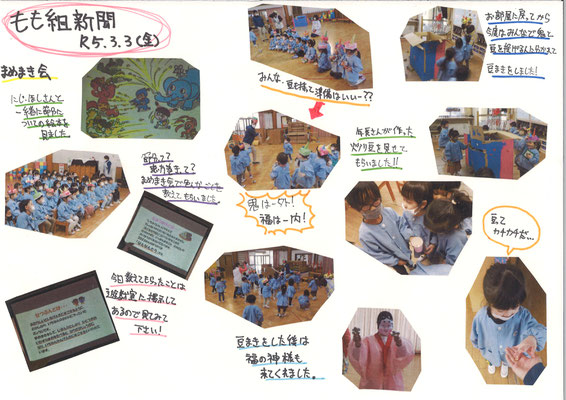 もも組新聞
R5.3.3(金)
まめまき会
にじ・ほしさんと
一緒に節分に
ついての絵本を
見ました
節分って?
恵方巻きって?
まめまき会で色んなことを
教えてもらいました。
今日教えてもらったことは
遊戯室に掲示して
あるので見てみて
下さい!
みんな、豆を持って準備はいいー??
鬼はー外!
福はー内!
豆まきをした後は
福の神様も
来てくれました。
お部屋に戻ってから
今度はみんなで鬼で
豆を投げる人に分かれて
豆まきをしました!
年長さんが作った
炒り豆を見せて
もらいました!!
豆って
カチカチだ…